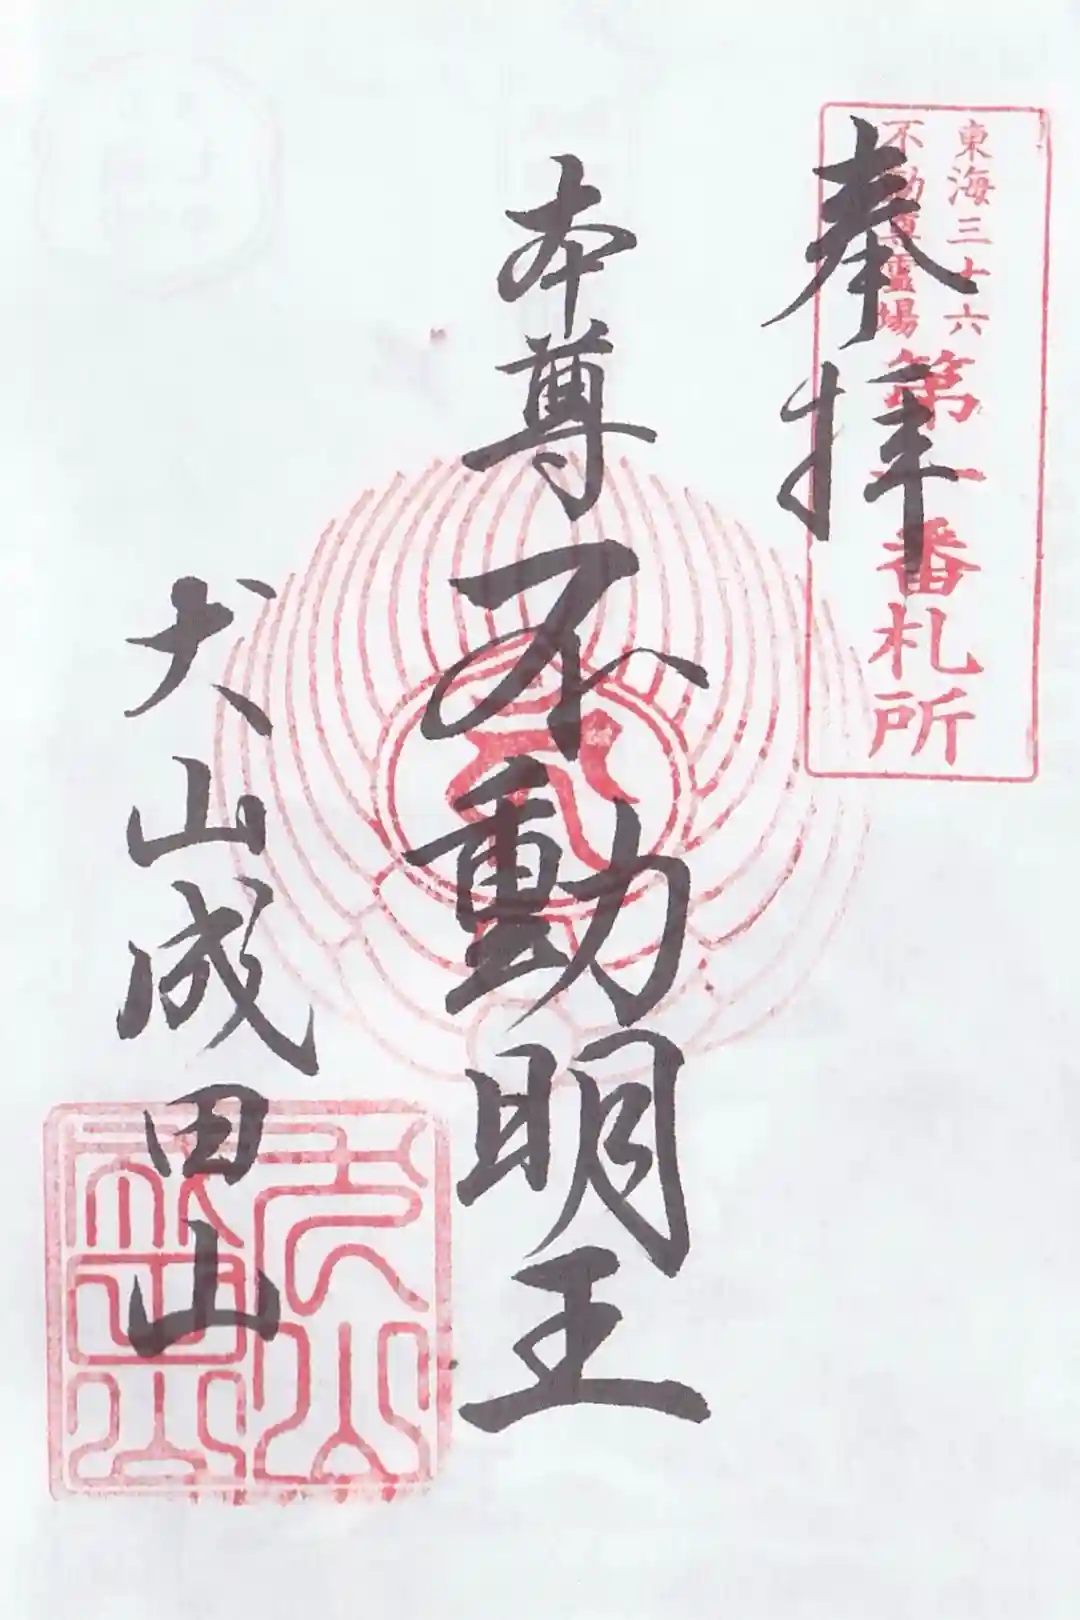 東海三十六
不動尊霊場
第一番札所
奉拝
本尊不動明王
犬山成田山